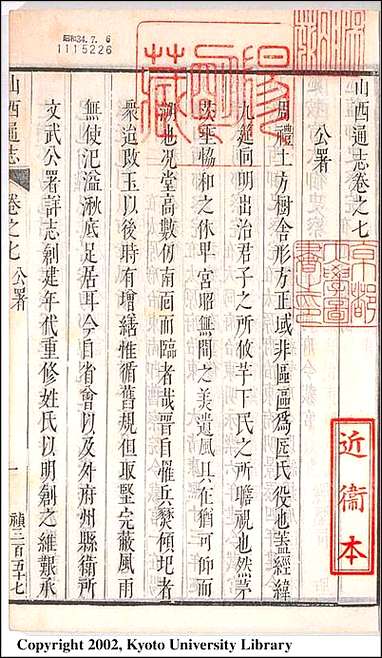 昭和34.7.6
1115226
陽明藏
山西通志卷之七
京都
大學圖
書之印
近衞本
公署
周禮土方樹舍形方正域非區區為匠氏役也蓋經緯
九筵向明出治君子之所攸芋下民之所瞻視也然茅
茨垂協和之休卑宮昭無間之美遺風具在猶可仰而
也況堂高數仞南面而臨者哉晉自罹兵燹傾圯者
衆迨政玉以後時有增繕惟循舊規但取堅完蔽風雨
無使汜溢湫底足居耳今自省會以及外府州縣衛所
文武公署詳志創建年代重修姓氏以明創之維艱承
山西通志 卷之七 公署 一 禎三百五十七
Copyright 2002, Kyoto University Library